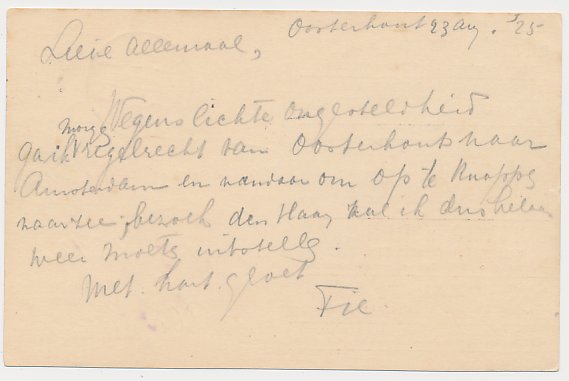 Oosterhout 23 Aug. '25
Lieve allemaal,
Wegens lichte ongesteldheid
ga ik morge regelrecht van Oosterhout naar
Amsterdam en vandaar om op te knappe
naar zee; bezoek den Haag zal ik dus helaas
weer moete uitstelle.
Met hart. groet
Fie.